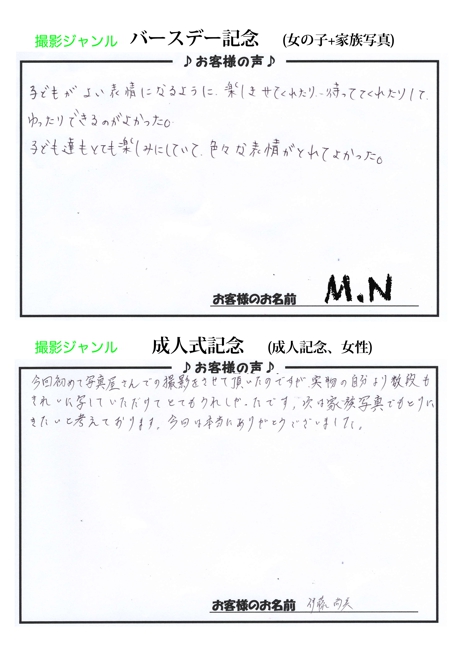 撮影ジャンル バースデー記念 (女の子+家族写真)
♪お客様の声♪
子どもがよい表情になるように、楽しませてくれたり、待っててくれたりして、
ゆったりできるのがよかった。
子ども達もとても楽しみにしていて、色々な表情がとれてよかった。
お客様のお名前 M.N
撮影ジャンル 成人式記念 (成人記念、女性)
♪お客様の声♪
今回初めて写真屋さんでの撮影をさせて頂いたのですが実物の自分より数段も
きれいに写していただけてとてもうれしかったです。次は家族写真でもとりに
きたいと考えております。今回は本当にありがとうございました。
お客様のお名前